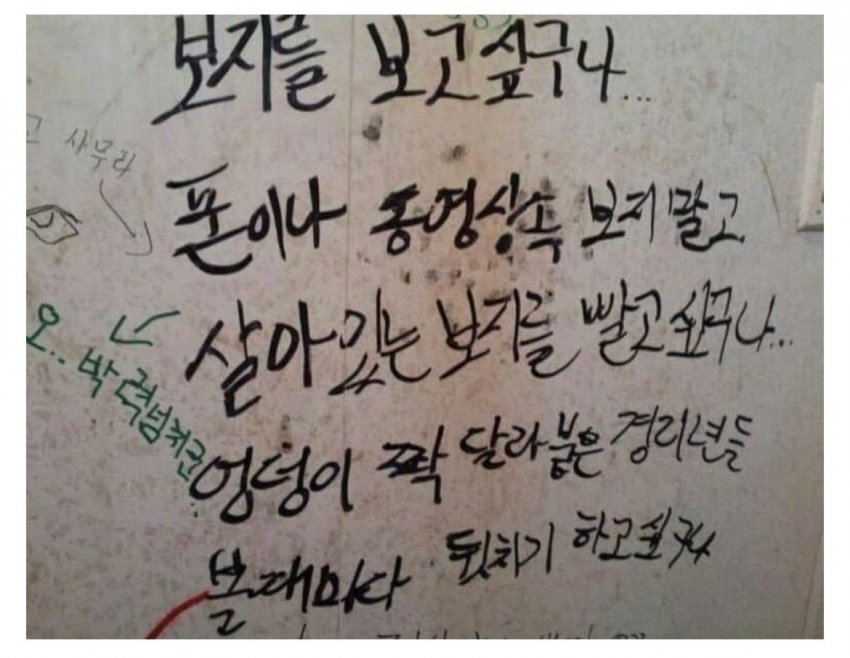 보지를 보고싶구나...
고 사무라
폰이나 동영상속 보지말고
살아있는 보지를 빨고싶구나...
오.. 박력넘쳐군..
엉덩이 짝 달라붙은 경리년들
볼때마다 뒷치기 하고싶구나